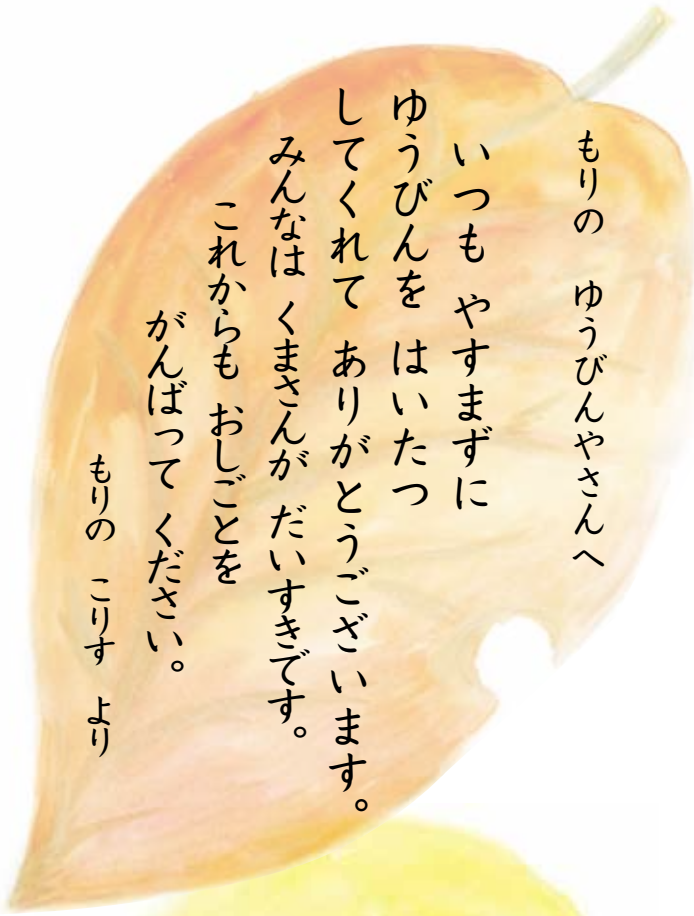 もりの　ゆうびんやさんへ
いつも　やすまずに
ゆうびんを　はいたつ
してくれて　ありがとうございます。
みんなは　くまさんが　だいすきです。
これからも　おしごとを
がんばって　ください。
もりの　こりす　より